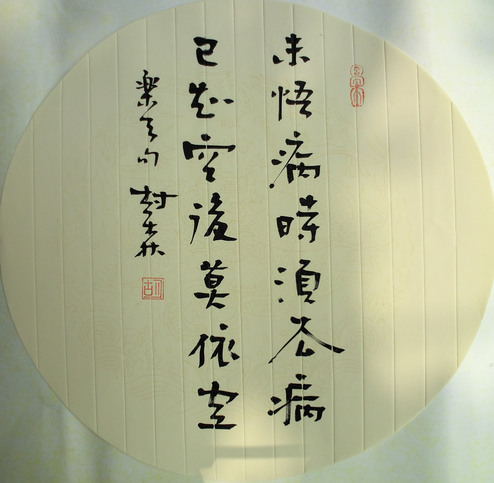 未悟病時須去病
已知空後莫依空
樂天句